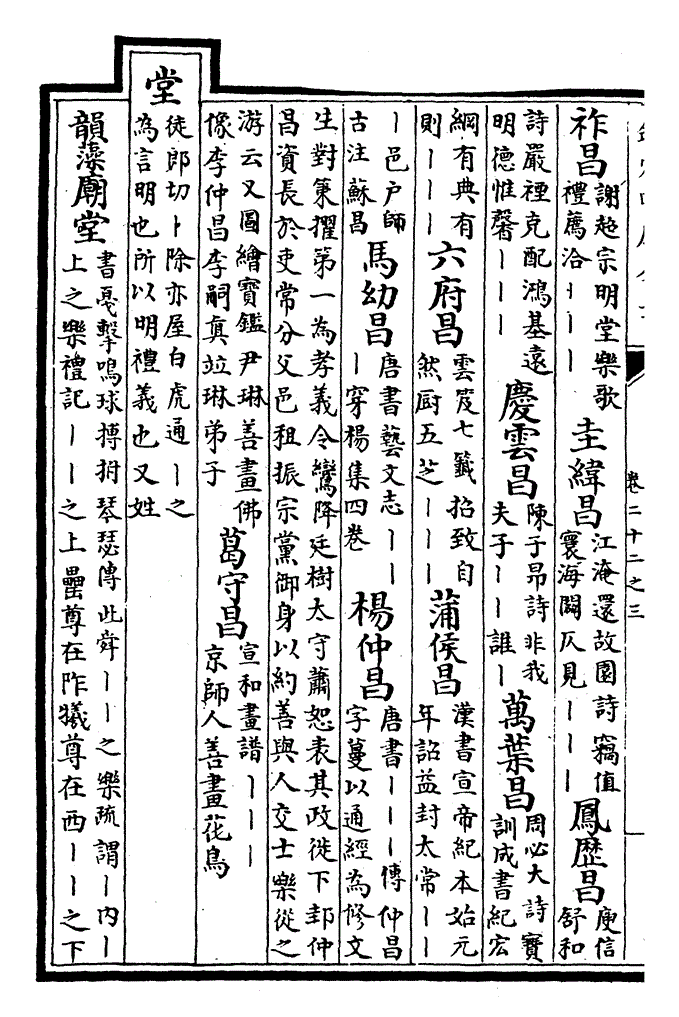 卷二十二之三
祚昌謝超宗明堂樂歌禮薦洽丨丨丨圭緯昌江淹還故園詩竊值寰海闢仄見丨丨丨鳳歷昌庾信舒和
詩嚴禋克配鴻基遠明德惟馨丨丨丨慶雲昌陳子昂詩非我夫子丨丨誰丨萬葉昌周必大詩寶訓成書紀宏
綱有典有則丨丨丨六府昌雲笈七籤招致自然厨五芝丨丨丨蒲侯昌漢書宣帝紀本始元年詔益封太常丨丨
丨邑户師古注蘇昌馬幼昌唐書藝文志丨丨丨穿楊集四卷楊仲昌唐書丨丨丨傳仲昌字蔓以通經為修文
生對策擢第一為孝義令鸞降廷樹太守蕭恕表其政徙下邽仲昌資長於吏常分父邑租振宗黨御身以約善與人交士樂從之
游云又圖繪寶鑑尹琳善畫佛像李仲昌李嗣真竝琳弟子葛守昌宣和畫譜丨丨丨京師人善畫花鳥
堂徒郎切卜除亦屋白虎通丨之為言明也所以明禮義也又姓
韻藻廟堂書戞擊鳴球搏拊琴瑟傳此舜丨丨之樂疏謂丨内丨上之樂禮記丨丨之上罍尊在阼犧尊在西丨丨之下